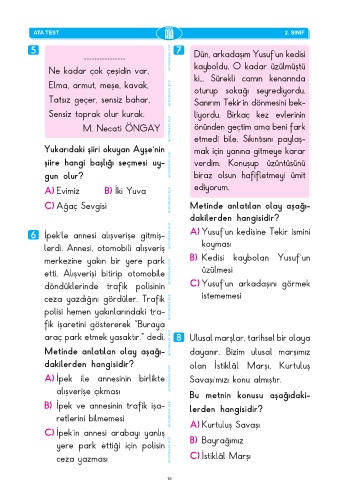 ATA TEST
2. SINIF
5
................
Ne kadar çok çeşidin var,
Elma, armut, meşe, kavak,
Tatsız geçer, sensiz bahar,
Sensiz toprak olur kurak.
M. Necati ÖNGAY
Yukarıdaki şiiri okuyan Ayşe'nin
şiire hangi başlığı seçmesi uy-
gun olur?
A) Evimiz B) İki Yuva
C) Ağaç Sevgisi
6 İpek'le annesi alışverişe gitmiş-
lerdi. Annesi, otomobili alışveriş
merkezine yakın bir yere park
etti. Alışverişi bitirip otomobile
döndüklerinde trafik polisinin
ceza yazdığını gördüler. Trafik
polisi hemen yakınlarındaki tra-
fik işaretini göstererek "Buraya
araç park etmek yasaktır." dedi.
Metinde anlatılan olay aşağı-
dakilerden hangisidir?
A) İpek ile annesinin birlikte
alışverişe çıkması
B) İpek ve annesinin trafik işa-
retlerini bilmemesi
C) İpek'in annesi arabayı yanlış
yere park ettiği için polisin
ceza yazması
7
Dün, arkadaşım Yusuf'un kedisi
kayboldu. O kadar üzülmüştü
ki... Sürekli camın kenarında
oturup sokağı seyrediyordu.
Sanırım Tekir'in dönmesini bek-
liyordu. Birkaç kez evlerinin
önünden geçtim ama beni fark
etmedi bile. Sıkıntısını paylaş-
mak için yanına gitmeye karar
verdim. Konuşup üzüntüsünü
biraz olsun hafifletmeyi ümit
ediyorum.
Metinde anlatılan olay aşağı-
dakilerden hangisidir?
A) Yusuf'un kedisine Tekir ismini
koyması
B) Kedisi kaybolan Yusuf'un
üzülmesi
C) Yusuf'un arkadaşını görmek
istememesi
8 Ulusal marşlar, tarihsel bir olaya
dayanır. Bizim ulusal marşımız
olan İstiklâl Marşı, Kurtuluş
Savaşı'mızı konu almıştır.
Bu metnin konusu aşağıdaki-
lerden hangisidir?
A) Kurtuluş Savaşı
B) Bayrağımız
C) İstiklâl Marşı